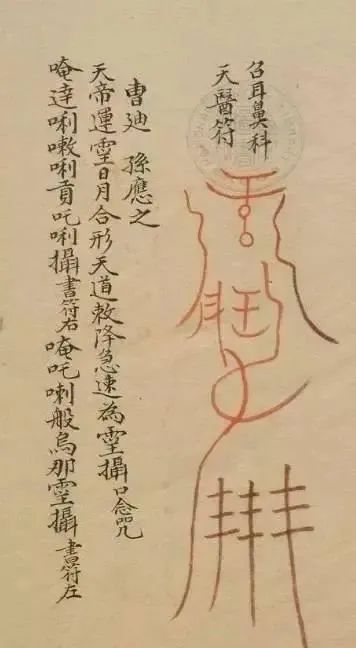 召耳鼻科
天醫符
曹廸 孫應之
天帝運霊日月合形天道敕降急速為霊攝口念咒
唵達唎嗽唎貢吒唎攝書符右唵吒喇般烏那霊攝書符左